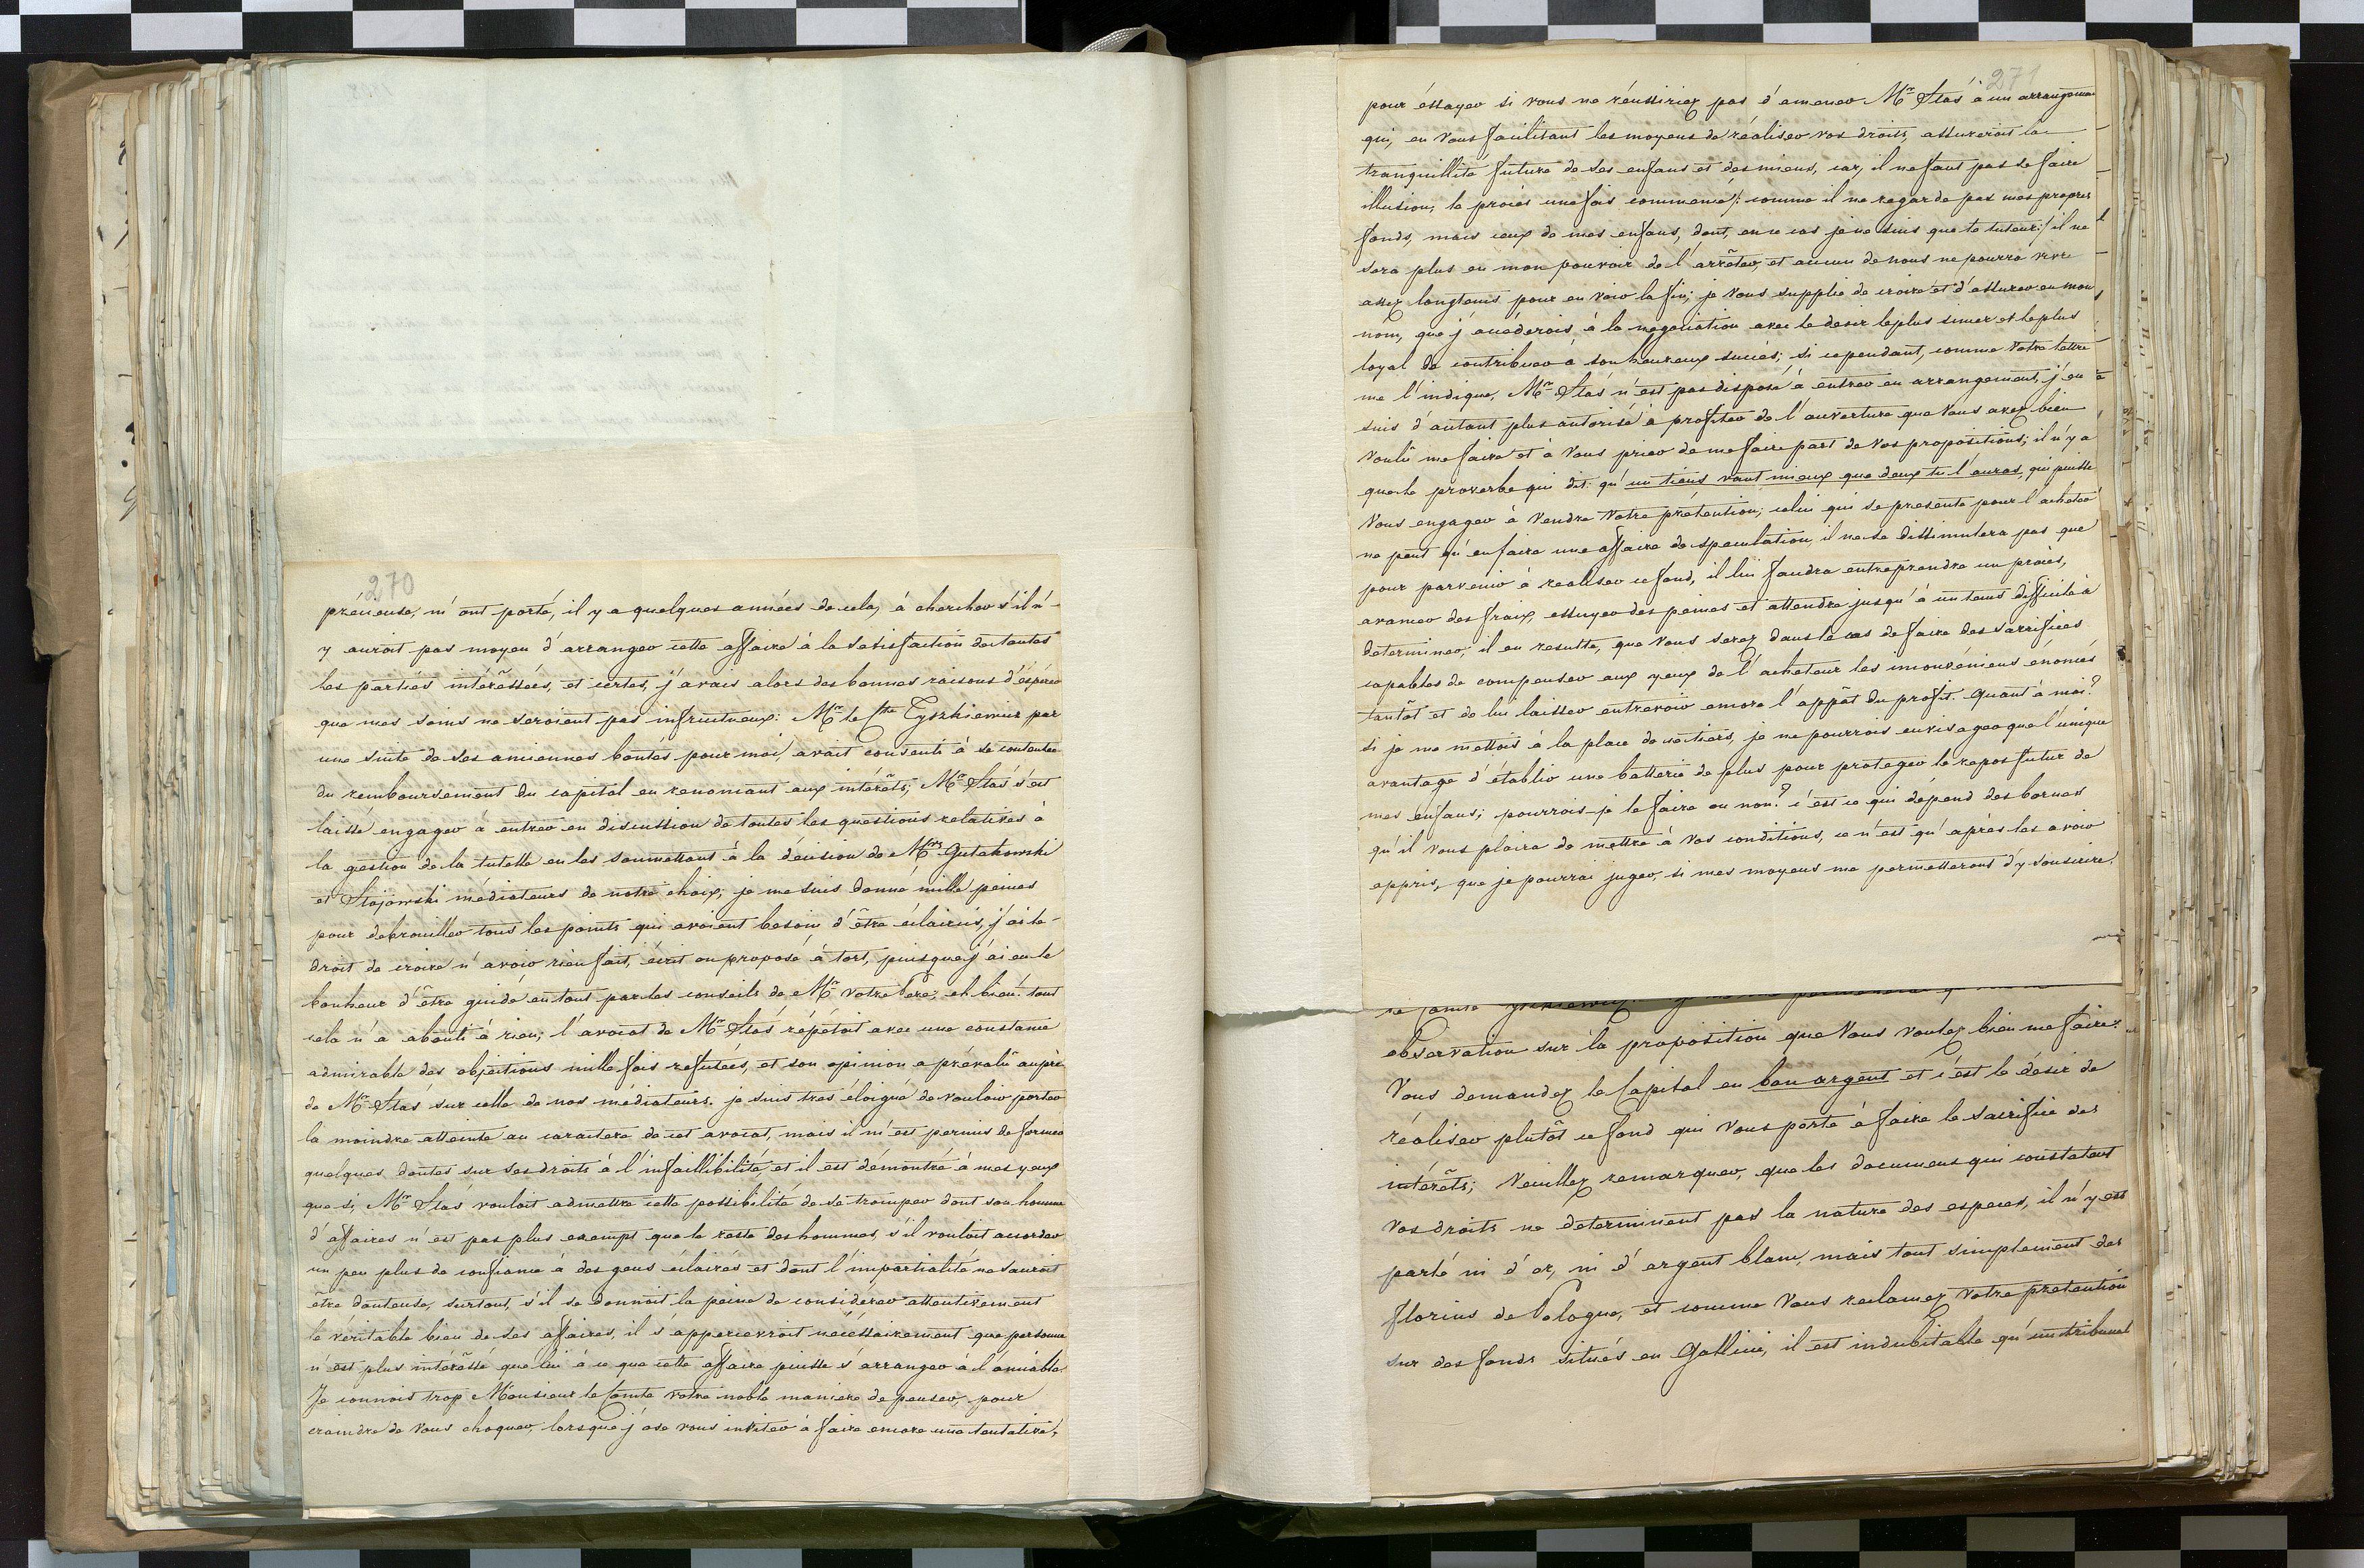 270
précieuse, m'ont porté, il y a quelques années de cela, à chercher s'il n'-
y auroit pas moyen d'arranger cette affaire à la satisfaction de toutes
les partiés intérêssées, et certes, j'avais alors des bonnes raisons d'éspérer
que mes soins ne seroient pas infructueux: Mr le Cte Tyszkiewicz par
une suite de ses anciennes bontés pour moi, avait consenti à se contenter
du remboursement du capital en renonçant aux intérêts; Mr Staś s'est
laissé engager à entrer en discussion de toutes les questions relatives à
la gestion de la tutelle en les soumettant à la décision de Mrs Gutakowski
et Stojowski médiateurs de notre choix; je me suis donné mille peines
pour debrouiller tous les points qui avoient besoin d'être éclaircis, j'ai le-
droit de croire n'avoir rien fait, écrit ou proposé à tort, puisque j'ai eu le
bonheur d'être guidé en tout par les conseils de Mr votre Pere; eh bien! tout
cela n'a abouti à rien; l'avocat de Mr Staś répétoit avec une constance
admirable des objections mille fois refutées, et son opinion a prévalû auprès
de Mr Staś sur celle de nos médiateurs. je suis tres éloigné de vouloir porter
la moindre atteinte au caractere de cet avocat, mais il m'est permis de former
quelques doutes sur ses droits à l'infaillibilité, et il est démontré à mes yeux
que si, Mr Staś vouloit admettre cette possibilité de se tromper dont son homme
d'affaires n'est pas plus exempt que le reste des hommes, s'il vouloit accorder
un peu plus de confiance à des gens éclairés et dont l'impartialité ne sauroit
être douteuse, surtout, s'il se donnoit la peine de considérer attentivement
le véritable bien de ses affaires, il s'appercevroit necéssairement que personne
n'est plus intérêssé que lui à ce que cette affaire puisse s'arranger à l'amiable.
Je connois trop Monsieur le Comte votre noble maniere de penser, pour
craindre de Vous choquer, lorsque j'ose vous inviter à faire encore une tentative,
271
pour éssayer si vous ne réussiriez pas d'amener Mr Staś à un arrangemen
qui, en Vous facilitant les moyens de réaliser vos droits, assureroit la
tranquillité future de ses enfans et des miens, car, il ne faut pas se faire
illusion, le procès une fois commencé /: comme il ne regarde pas mes propres
fonds, mais ceux de mes enfans, dont, en ce cas je ne suis que le tuteur :/ il ne
sera plus en mon pouvoir de l'arrêter, et aucun de nous ne pourra vivre
assez longtems pour en voir la fin; je Vous supplie de croire et d'assurer en mon
nom, que j'accéderois à la negociation avec le desir le plus sincer et le plus
loyal de contribuer à son heureux succès; si cependant, comme Votre lettre
me l'indique, Mr Staś n'est pas disposé à entrer en arrangement, j'en
suis d'autant plus autorisé à profiter de l'ouverture que Vous avez bien
voulû me faire et à Vous prier de me faire part de Vos propositions; il n'y a
que le proverbe qui dit: qu'un tiens vaut mieux que deux tu l'auras, qui puisse
Vous engager à Vendre Votre prétention; celui qui se presente pour l'acheter
ne peut qu'en faire une affaire de speculation, il ne se dissimulera pas que
pour parvenir à realiser ce fond, il lui faudra entreprendre un procès,
avancer des fraix, essuyer des peines et attendre jusqu'à un tems difficile à
determiner; il en resulte, que Vous serez dans le cas de faire des sacrifices
capables de compenser aux yeux de l'acheteur les inconvéniens énoncés
tantôt et de lui laisser entrevoir encore l'appât du profit. Quant à moi?
si je me mettois à la place de ce tiers, je ne pourrois envisager que l'unique
avantage d'établir une batterie de plus pour proteger le repos futur de
mes enfans; pourrois-je le faire ou non? c'est ce qui dépend des bornes
qu'il vous plaira de mettre à Vos conditions, ce n'est qu'après les avoir
appris, que je pourrai juger, si mes moyens me permetteront d'y souscrire.
observation sur la proposition que Vous voulez bien me faire:
Vous demandez le Capital en bon argent et c'est le désir de
réaliser plutôt ce fond qui Vous porte à faire le sacrifice des
intérêts; Veuillez remarquer, que les documens qui constatent
Vos droits ne déterminent pas la nature des especes, il n'y est
parlé ni d'or, ni d'argent blanc, mais tout simplement des
florins de Pologne, et comme Vous reclamez Votre prétention
sur des fonds situés en Gallicie, il est indubitable qu'un tribunal